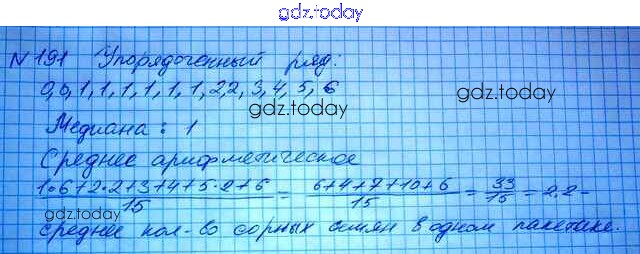 gdz.today
N 191 Упорядоченный ряд:
0,0,1,1,1,1,1,1,2,2,3,4,5,6
gdz.today
gdz.today
Медиана: 1
Среднее арифметическое
1·6+2·2+3+4+5·2+6/15 = 6+4+7+10+6/15 = 33/15 = 2,2 –
gdz.today
gdz.today
среднее кол-во сорных семян в одном пакетике.